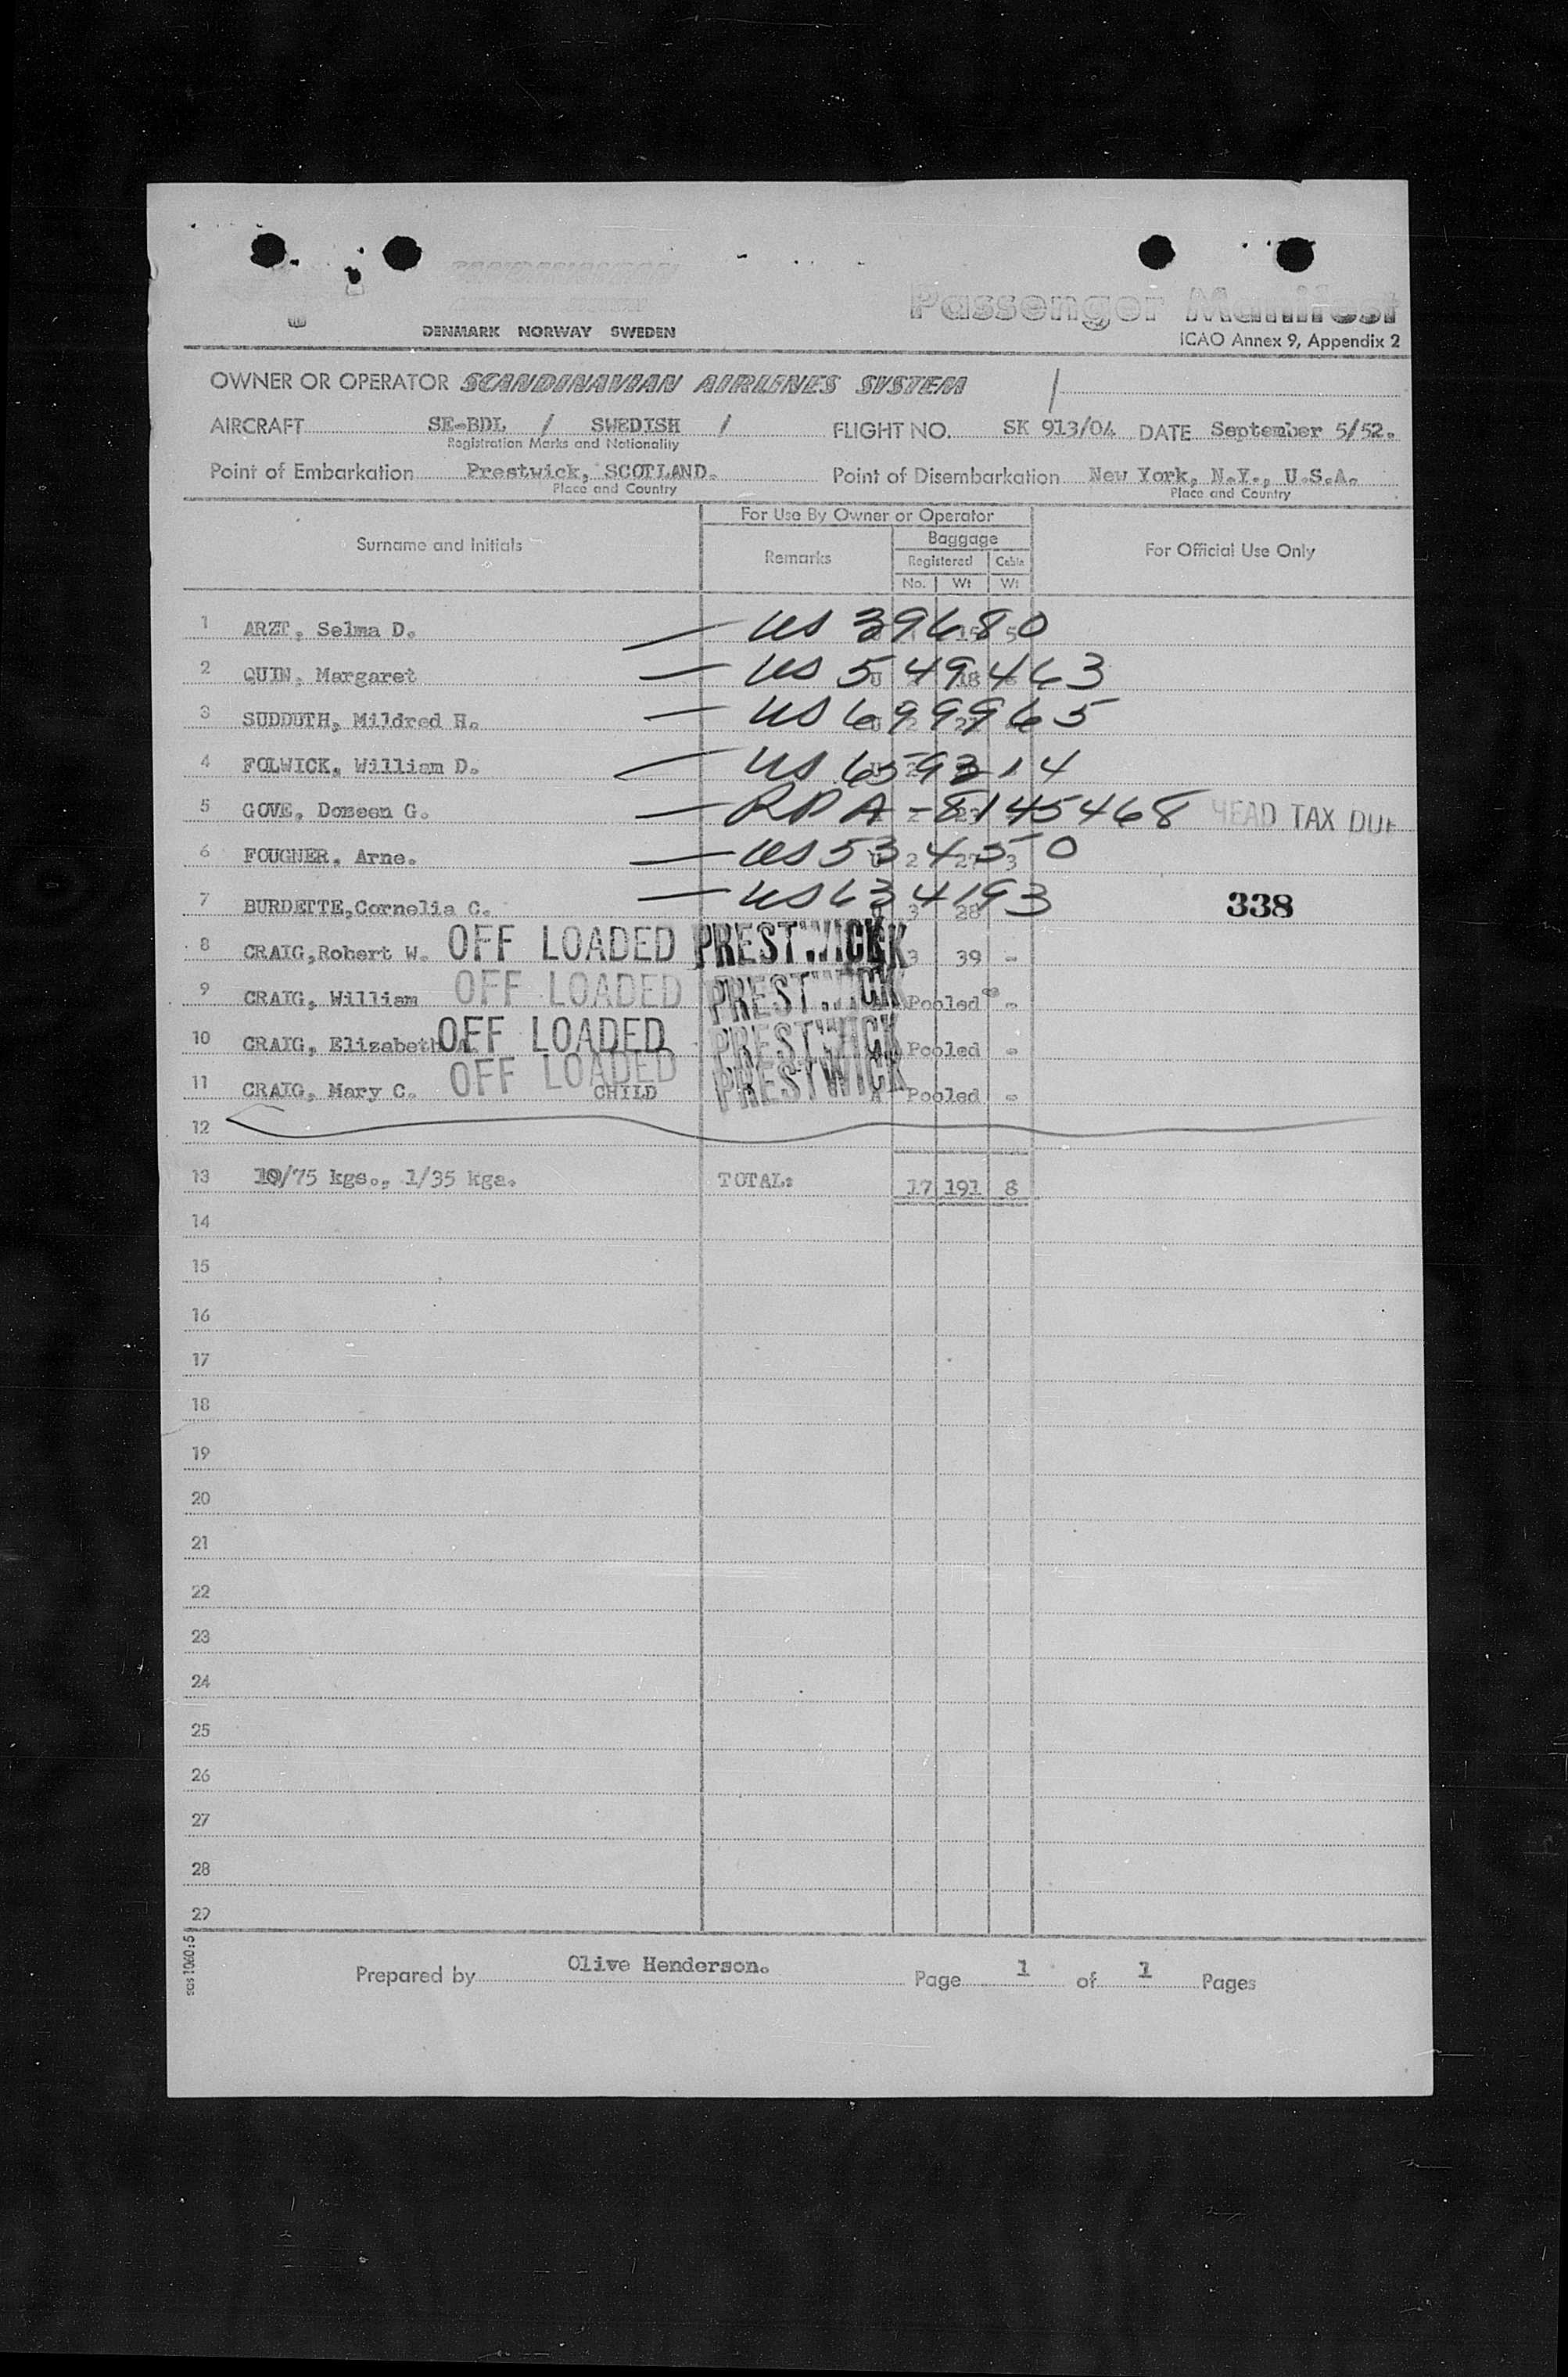 Passenger Manifest
DENMARK NORWAY SWEDEN
ICAO Annex 9, Appendix 2
OWNER OR OPERATOR SCANDINAVIAN AIRLINES SYSTEM /
AIRCRAFT SE-BDL / SWEDISH / FLIGHT NO. SK 913/04 DATE September 5/52.
Registration Marks and Nationality
Point of Embarkation Prestwick, SCOTLAND. Point of Disembarkation New York, N.Y., U.S.A.
Place and Country Place and Country
For Use By Owner or Operator
Surname and Initials Remarks Baggage For Official Use Only
Registered Cabin
No. Wt Wt
1 ARZT, Selma D. — US 39680
2 QUIN, Margaret — US 549463
3 SUDDUTH, Mildred H. — US 699965
4 FOLWICK, William D. — US 659214
5 GOVE, Doreen G. — RPA - 8145468 HEAD TAX DUE
6 FOUGNER, Arne. — US 534350 U 2 27 3
7 BURDETTE, Cornelia C. — US 634193 U 3 28 338
8 CRAIG, Robert W. OFF LOADED PRESTWICK 3 39 -
9 CRAIG, William OFF LOADED PRESTWICK Pooled -
10 CRAIG, Elizabeth OFF LOADED PRESTWICK Pooled -
11 CRAIG, Mary C. OFF LOADED CHILD PRESTWICK A Pooled -
12
13 10/75 kgs., 1/35 kgs. TOTAL: 17 191 8
14
15
16
17
18
19
20
21
22
23
24
25
26
27
28
29
sas 1060:5
Prepared by Olive Henderson. Page 1 of 1 Pages